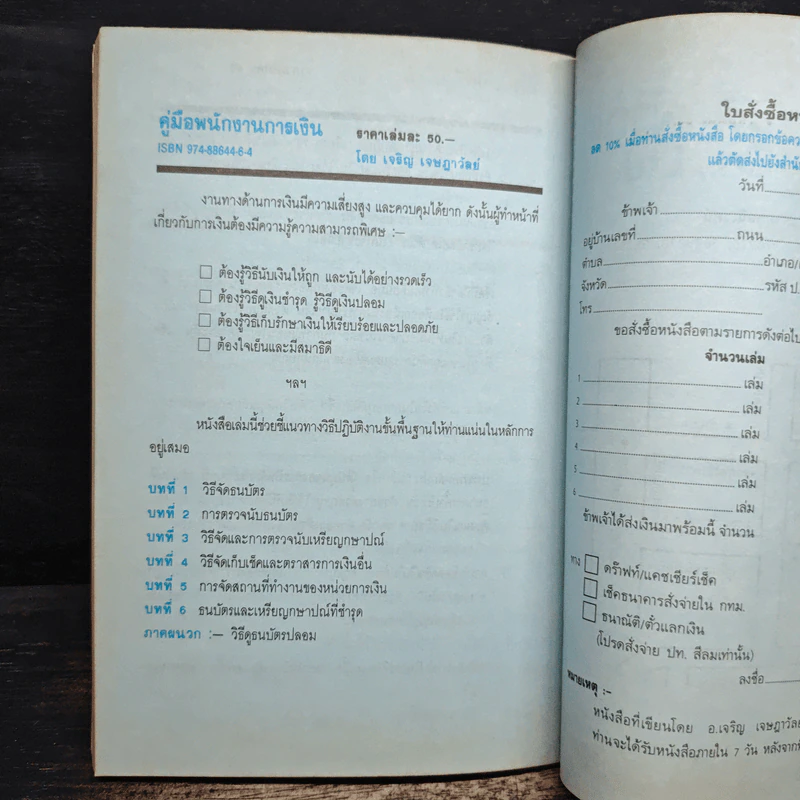 คู่มือพนักงานการเงิน ราคาเล่มละ 50.—
ISBN 974-88644-6-4 โดย เจริญ เจษฎาวัลย์
งานทางด้านการเงินมีความเสี่ยงสูง และควบคุมได้ยาก ดังนั้นผู้ทำหน้าที่
เกี่ยวกับการเงินต้องมีความรู้ความสามารถพิเศษ :—
ต้องรู้วิธีนับเงินให้ถูก และนับได้อย่างรวดเร็ว
ต้องรู้วิธีดูเงินชำรุด รู้วิธีดูเงินปลอม
ต้องรู้วิธีเก็บรักษาเงินให้เรียบร้อยและปลอดภัย
ต้องใจเย็นและมีสมาธิดี
ฯลฯ
หนังสือเล่มนี้ช่วยชี้แนวทางวิธีปฏิบัติงานขั้นพื้นฐานให้ท่านแน่นในหลักการ
อยู่เสมอ
บทที่ 1 วิธีจัดธนบัตร
บทที่ 2 การตรวจนับธนบัตร
บทที่ 3 วิธีจัดและการตรวจนับเหรียญกษาปณ์
บทที่ 4 วิธีจัดเก็บเช็คและตราสารการเงินอื่น
บทที่ 5 การจัดสถานที่ทำงานของหน่วยการเงิน
บทที่ 6 ธนบัตรและเหรียญกษาปณ์ที่ชำรุด
ภาคผนวก :— วิธีดูธนบัตรปลอม
ใบสั่งซื้อ
ลด 10% เมื่อท่านสั่งซื้อหนังสือ โดยกรอกข้อคว
แล้วตัดส่งไปยังสำนั
วันที่
ข้าพเจ้า
อยู่บ้านเลขที่ ถนน
ตำบล อำเภอ/
จังหวัด รหัส ป.
โทร
ขอสั่งซื้อหนังสือตามรายการดังต่อไป
จำนวนเล่ม
1 เล่ม
2 เล่ม
3 เล่ม
4 เล่ม
5 เล่ม
6 เล่ม
ข้าพเจ้าได้ส่งเงินมาพร้อมนี้ จำนวน
ทาง ดร๊าฟท์/แคชเชียร์เช็ค
เช็คธนาคารสั่งจ่ายใน กทม.
ธนาณัติ/ตั๋วแลกเงิน
(โปรดสั่งจ่าย ปท. สีลมเท่านั้น)
ลงชื่อ
หมายเหตุ :—
หนังสือที่เขียนโดย อ.เจริญ เจษฎาวัลย
ท่านจะได้รับหนังสือภายใน 7 วัน หลังจาก